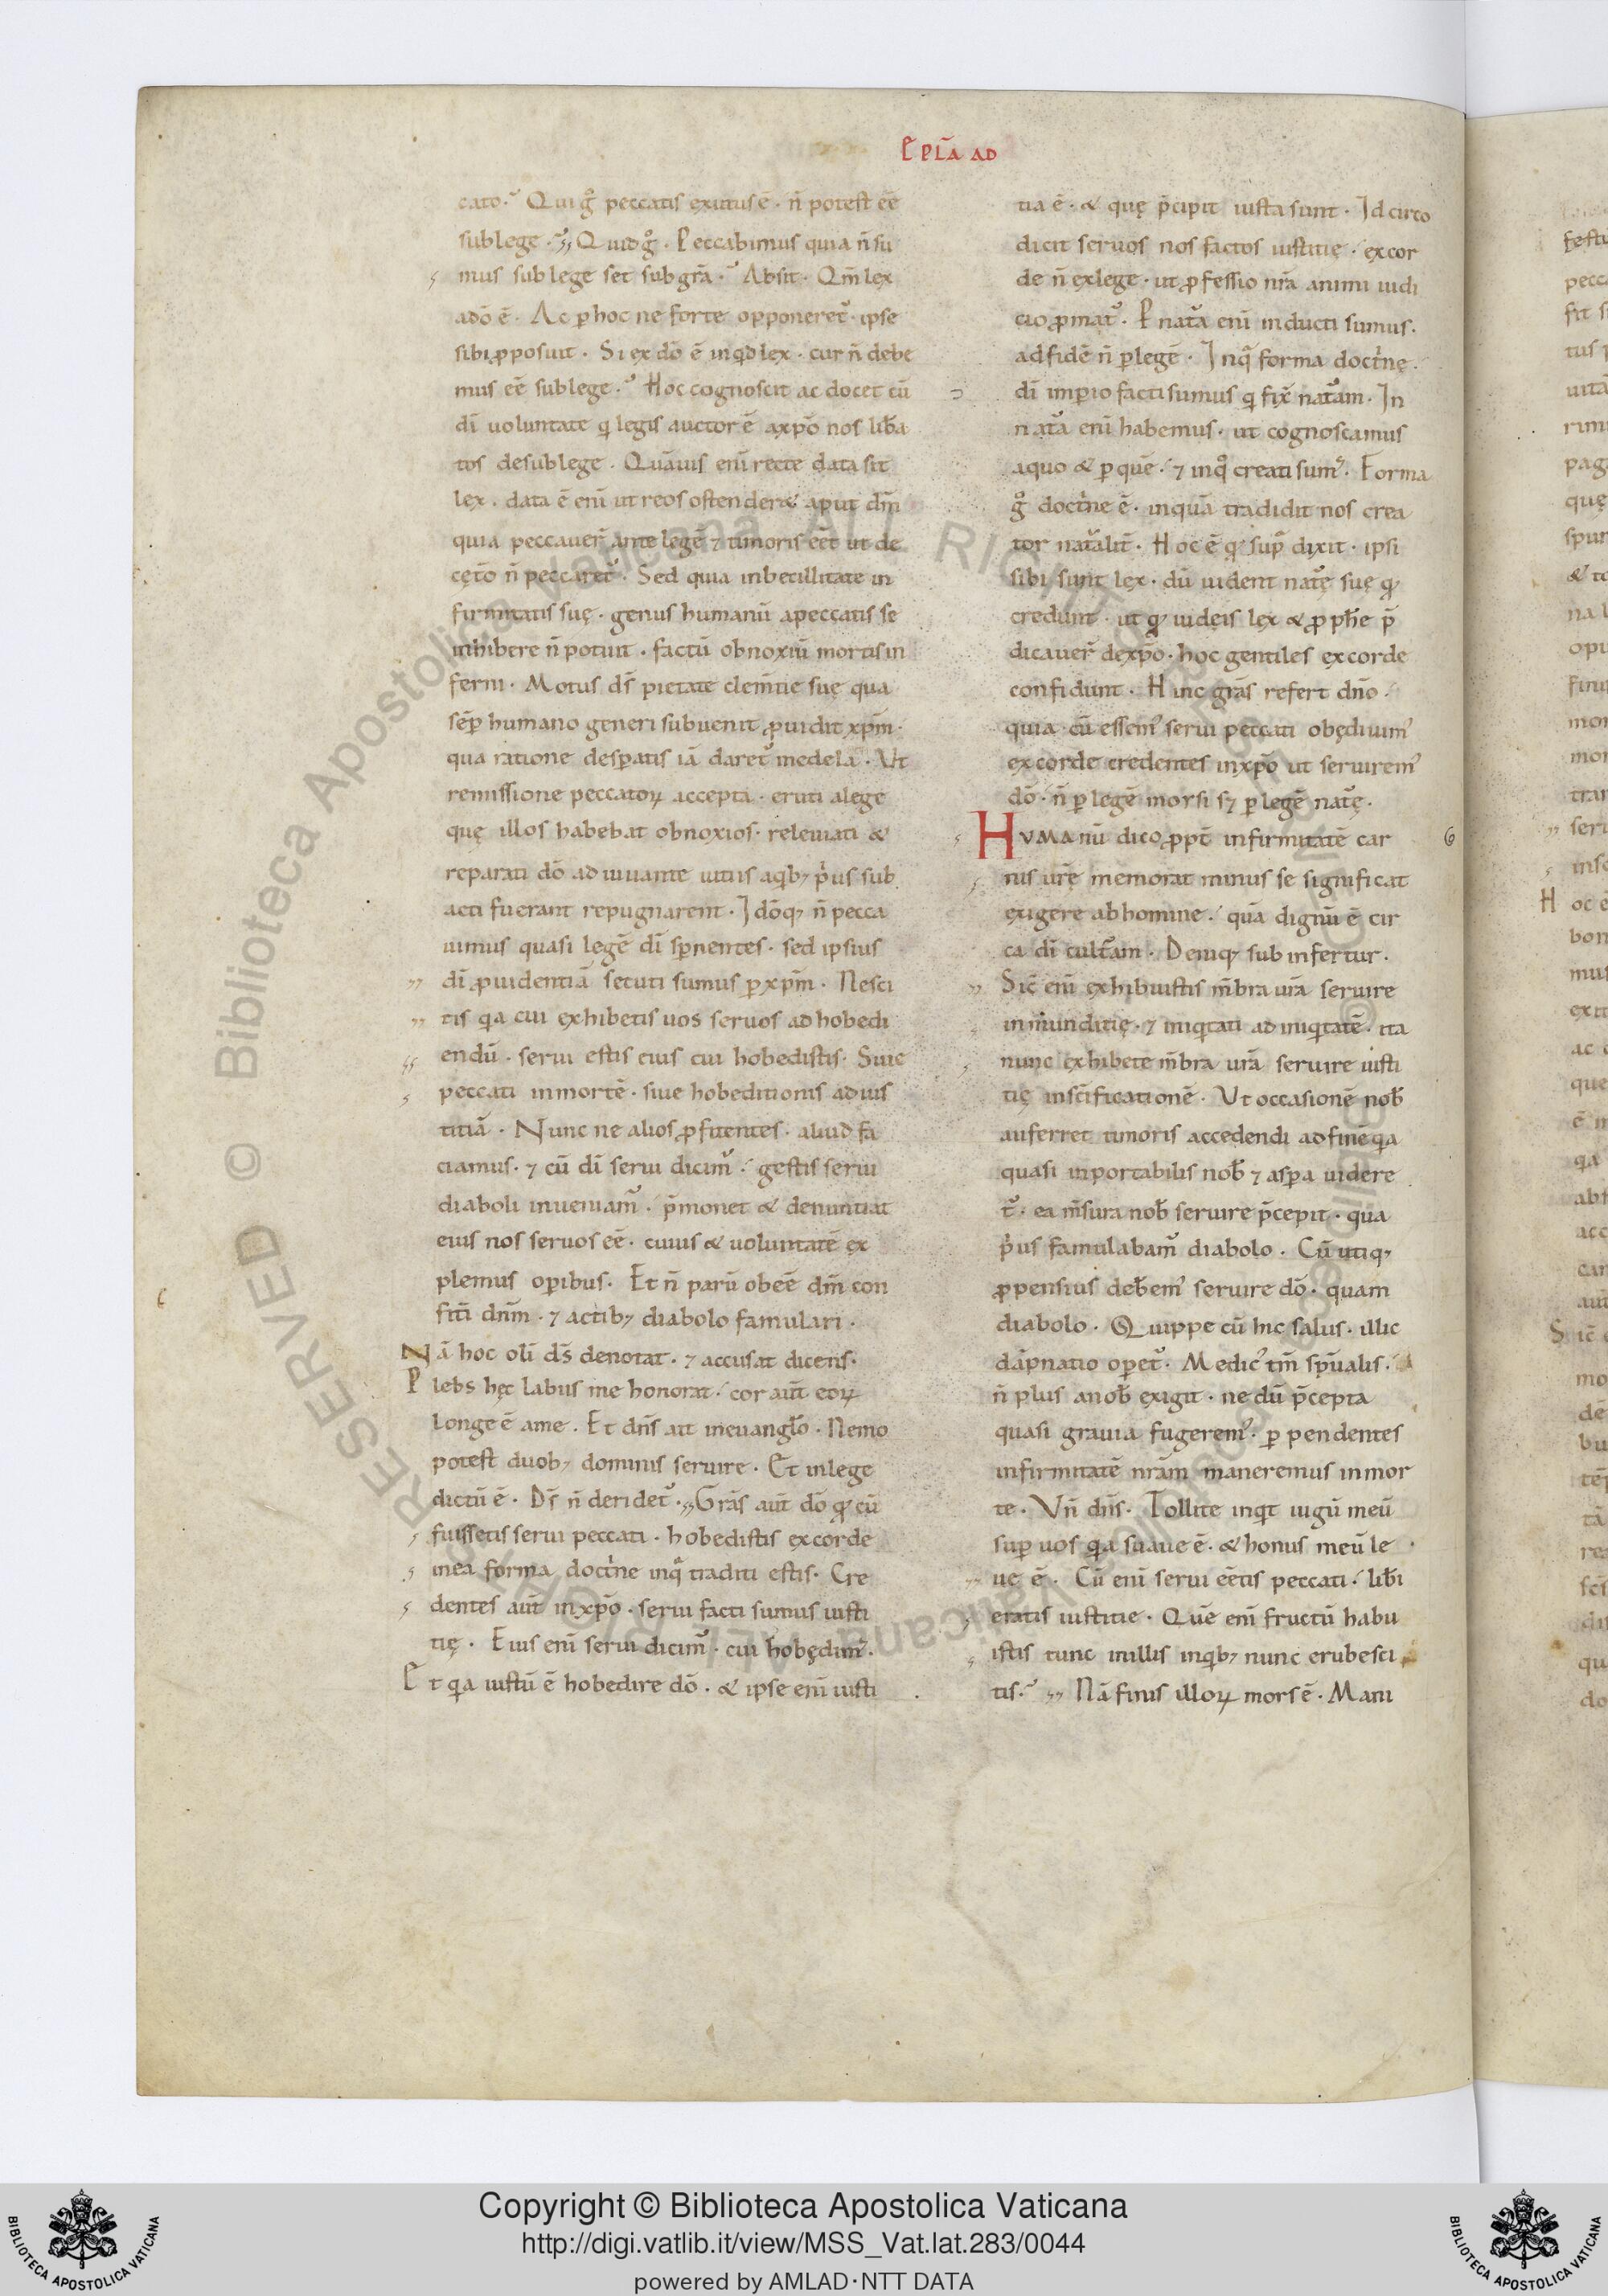 Epl̄a ad
cato. Qui gͦ peccatis exutus ē. n̄ potest eē
sub lege. Quid gͦ. Peccabimus quia n̄ su
mus sub lege set sub gr̄a. Absit. Qm̄ lex
a dō ē. Ac p̱ hoc ne forte opponeret᷑. ipse
sibi ꝓposuit. Si ex dō ē inqd lex. cur n̄ debe
mus eē sub lege. Hoc cognoscit ac docet cū
dī uoluntate q legis auctor ē a xp̄o nos lib̄a
tos de sub lege. Quāuis enī recte data sit
lex. data ē enī ut reos ostender& aput dm̄
quia peccauer̄ ante legē ⁊ timoris eēt ut de
cęto n̄ peccaret᷑. Sed quia inbecillitate in
firmitatis suę. genus humanū a peccatis se
inhibere n̄ potuit. factū obnoxiū mortis in
ferni. Motus ds̄ pietate clem̄tie suę qua
sēp humano generi subuenit ꝓuidit xp̄m.
qua ratione desp̱atis iā daret᷑ medela. Ut
remissione peccatoꝝ accepta. eruti a lege
quę illos habebat obnoxios. releuati &
reparati dō adiuuante uitiis a qb; p̍us sub
acti fuerant repugnarent. Idōq; n̄ pecca
uimus quasi legē dī sp̱nentes. sed ipsius
dī ꝓuidentiā secuti sumus p̱ xp̄m. Nesci
tis qa cui exhibetis uos seruos ad hobedi
endū. serui estis eius cui hobedistis. Siue
peccati in mortē. siue hobeditionis ad ius
titiā. Nunc ne alios ꝓfitentes. aliud fa
ciamus. ⁊ cū dī serui dicim᷑. gestis serui
diaboli inueniam᷑. p̄monet & denuntiat
eius nos seruos eē. cuius & uoluntatē ex
plemus op̱ibus. Et n̄ parū obeē dm̄ con
fiti dnm̄. ⁊ actib; diabolo famulari.
Nā hoc olī ds̄ denotat. ⁊ accusat dicens.
Plebs hęc labiis me honorat. cor aut̄ eoꝝ
longe ē a me. Et dn̄s ait in euangl̄o. Nemo
potest duob; dominis seruire. Et in lege
dictū ē. Ds̄ n̄ deridet᷑. Grās aut̄ dō qđ cū
fuissetis serui peccati. hobedistis ex corde
in ea forma doct̍ne in qͣ traditi estis. Cre
dentes aut̄ in xp̄o. serui facti sumus iusti
tię. Eius enī serui dicim᷑. cui hobędim᷒.
Et qa iustū ē hobedire dō. & ipse enī iusti
tia ē. & quę p̄cipit iusta sunt. Idcirco
dicit seruos nos factos iustitię. ex cor
de n̄ ex lege. ut ꝓfessio nr̄a animi iudi
cio ꝓmat᷑. P̱ natᷓa enī inducti sumus.
ad fidē n̄ p̱ legē. In qͣ forma doct̍nę.
dī imp̱io facti sumus q fix̄ natᷓam. In
natᷓa enī habemus. ut cognoscamus
a quo & p̱ quē. ⁊ in qͦ creati sum᷒. Forma
gͦ doct̍ne ē. in quā tradidit nos crea
tor natᷓalit̄. Hoc ē qđ supͣ dixit. ipsi
sibi sunt lex. dū uident nat᷑ę suę qđ
credunt. ut qđ iudeis lex & ꝓph̄e p̄
dicauer̄ de xp̄o. hoc gentiles ex corde
confidunt. Hinc grās refert dn̄o.
quia cū essem᷒ serui peccati obędiuim᷒
ex corde credentes in xp̄o ut seruirem᷒
dō. n̄ p̱ legē morsi s; p̱ legē nat᷑ę.
Humanū dico ꝓpt̄ infirmitatē car 6
nis ur̄ę memorat minus se significat
exigere ab homine. quā dignū ē cir
ca dī cultᷓam. Deniq; subinfertur.
Sic̄ enī exhibuistis m̄bra ur̄a seruire
inm̄unditię. ⁊ iniqtati ad iniqtatē. ita
nunc exhibete m̄bra ur̄a seruire iusti
tię in sc̄ificationē. Ut occasionē nob̄
auferret timoris accedendi ad finē qa
quasi inportabilis nob̄ ⁊ asp̱a uidere
t᷑. ea m̄sura nob̄ seruire p̄cepit. qua
p̍us famulabam᷑ diabolo. Cū utiq;
ꝓpensius deb̄em᷒ seruire dō. quam
diabolo. Quippe cū hic salus. illic
dāpnatio op̱et᷑. Medic᷒ tm̄ sp̄ualis.
n̄ plus a nob̄ exigit. ne dū p̄cepta
quasi grauia fugerem᷒. p̱pendentes
infirmitatē nr̄am maneremus in mor
te. Vn̄ dn̄s. Tollite inqt iugū meū
sup̱ uos qa suaue ē. & honus meū le
ue ē. Cū enī serui eētis peccati. lib̄i
eratis iustitie. Quē enī fructū habu
istis tunc in illis in qb; nunc erubesci
tis. Nā finis illoꝝ mors ē. Mani
Copyright © Biblioteca Apostolica Vaticana
http://digi.vatlib.it/view/MSS_Vat.lat.283/0044
powered by AMLAD·NTT DATA
BIBLIOTECA APOSTOLICA VATICANA
BIBLIOTECA APOSTOLICA VATICANA